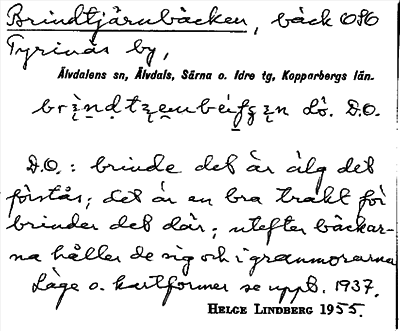 Brindtjärnbäcken, bäck OSO
Tyrinäs by,
Älvdalens sn, Älvdals, Särna o. Idre tg, Kopparbergs län.
D.O.
D.O.: brinde det är älg det
förstås; det är en bra trakt för
brinder det där; utefter bäckar-
na håller de sig och i granmorarna
Läge o. kartformer se uppt. 1937.
HELGE LINDBERG 1955.